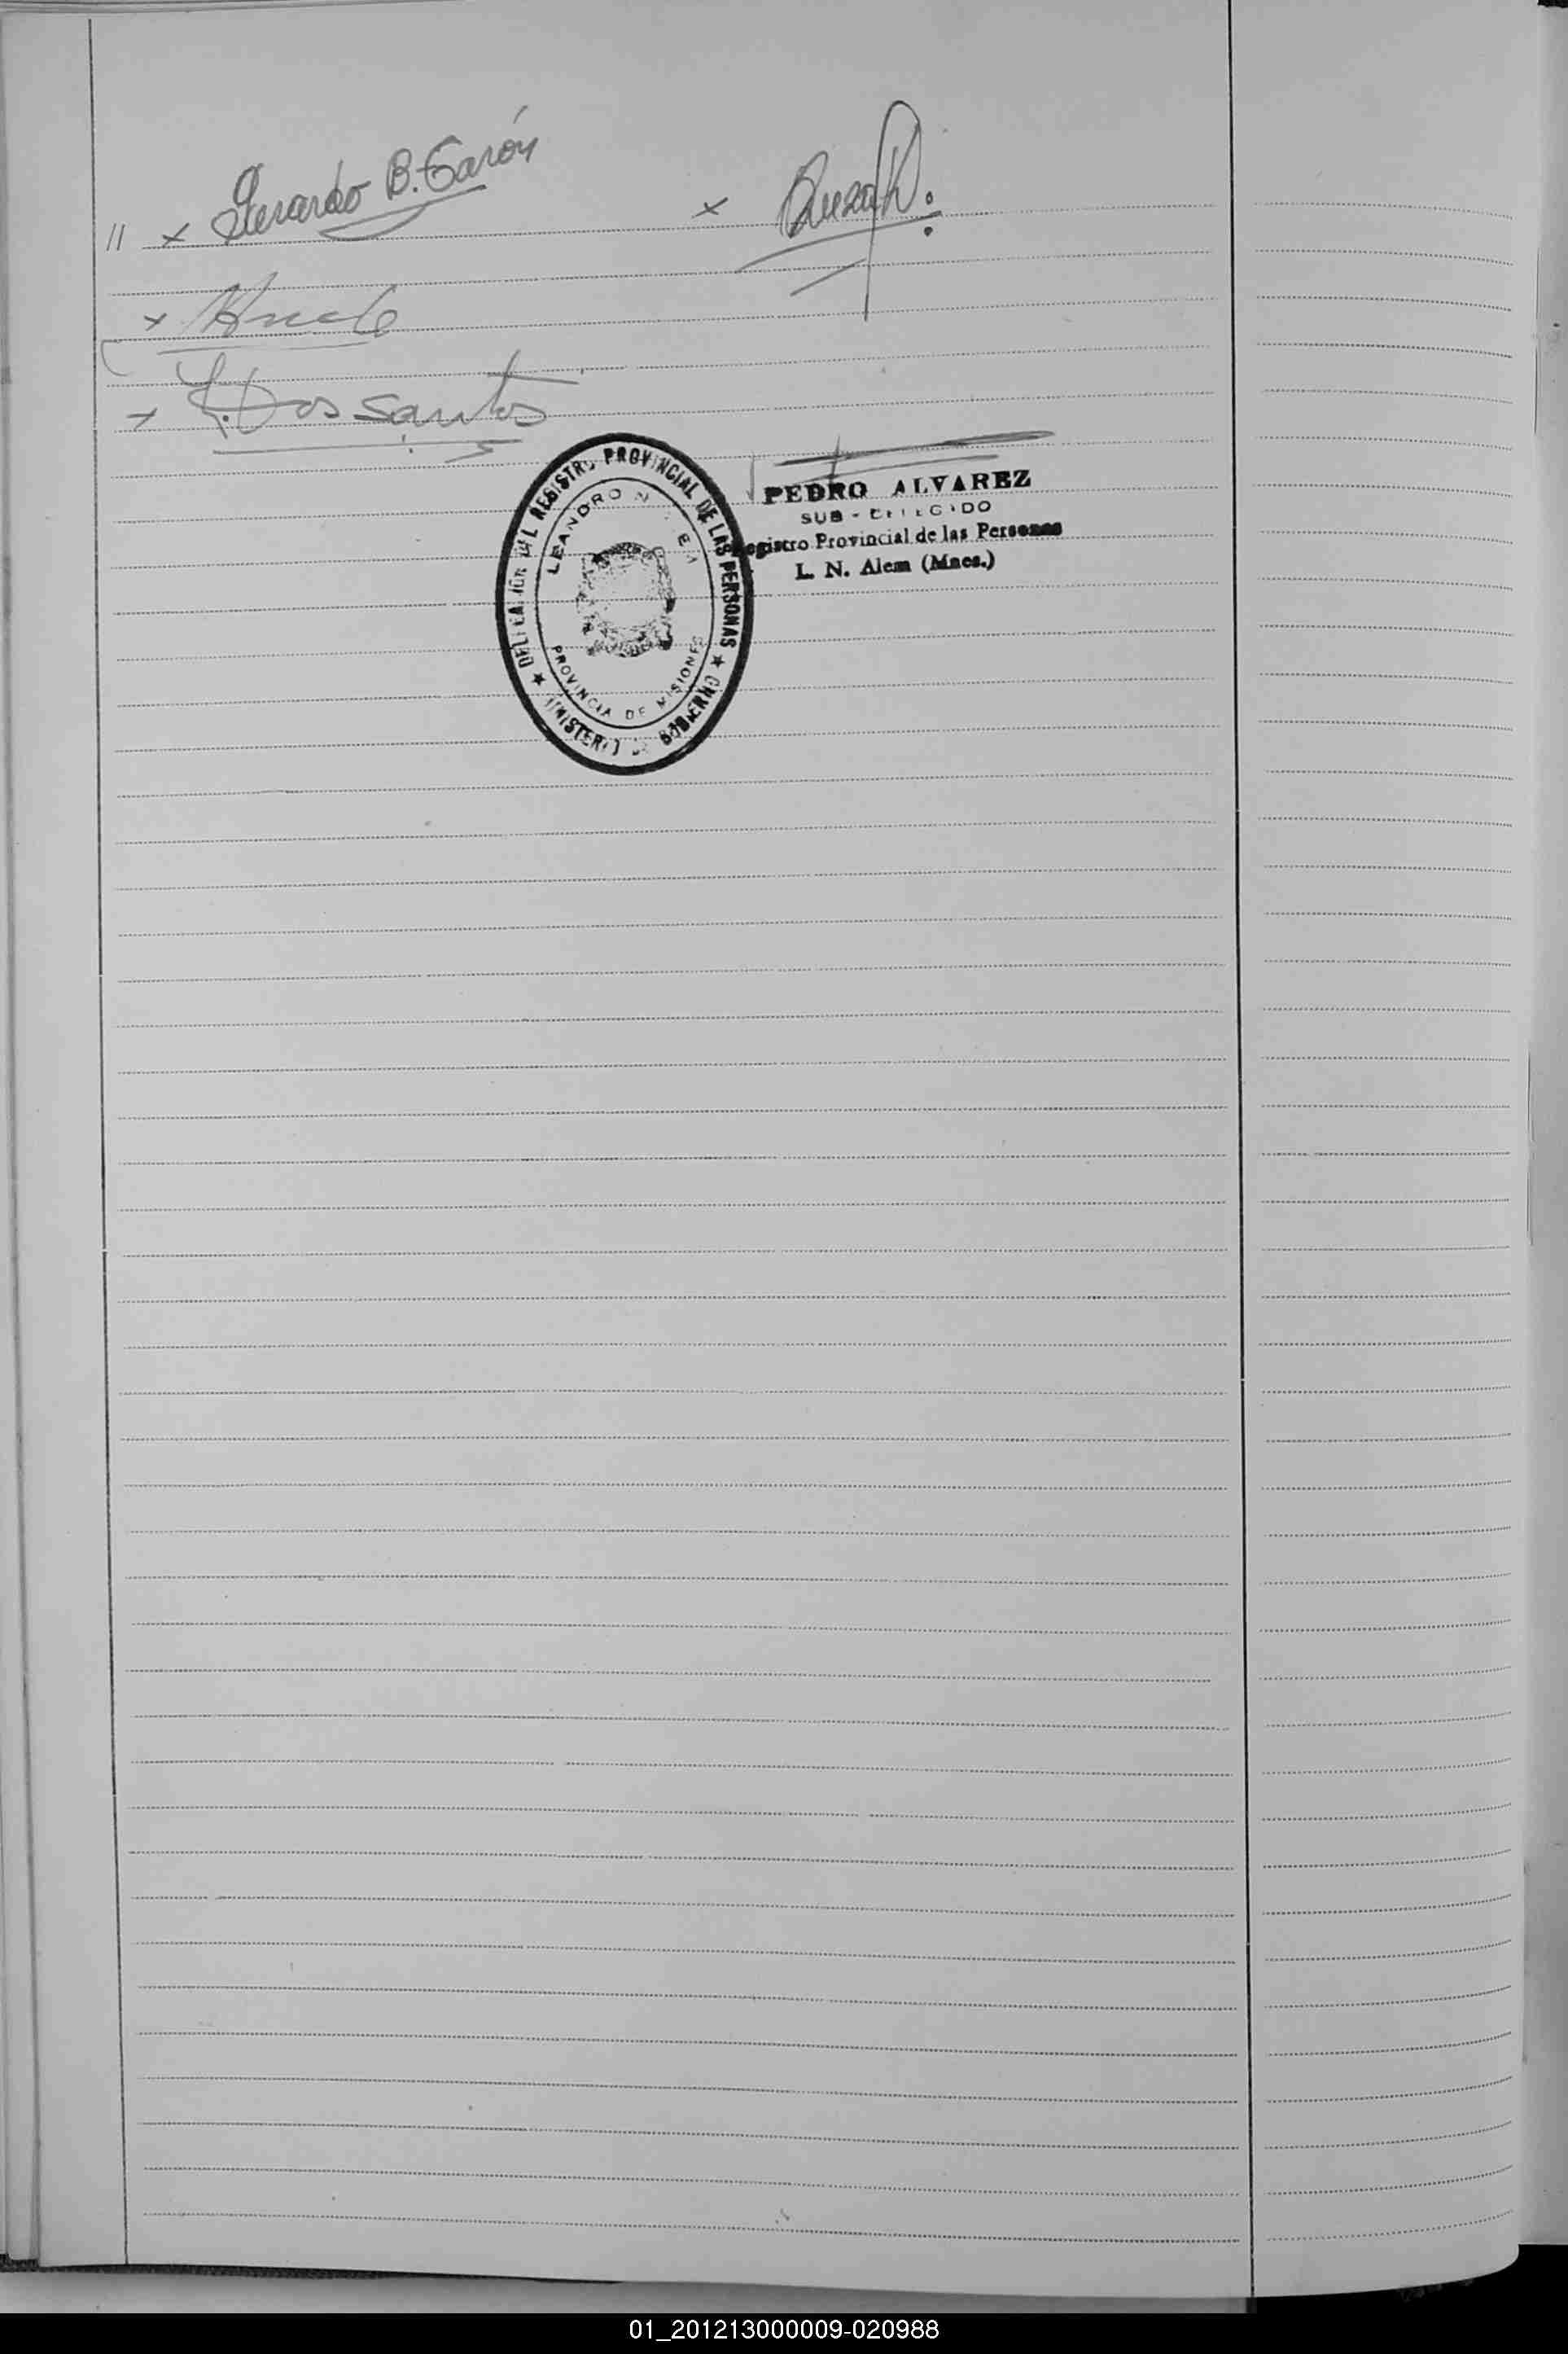 // x Gerardo B. Garón x
x
x Dos santos
DELEGACIÓN DEL REGISTRO PROVINCIAL DE LAS PERSONAS
LEANDRO N.
PROVINCIA DE MISIONES
★ MINISTERIO DE GOBIERNO ★
PEDRO ALVAREZ
SUB - DELEGADO
Registro Provincial de las Personas
L. N. Alem (Mnes.)
01_201213000009-020988